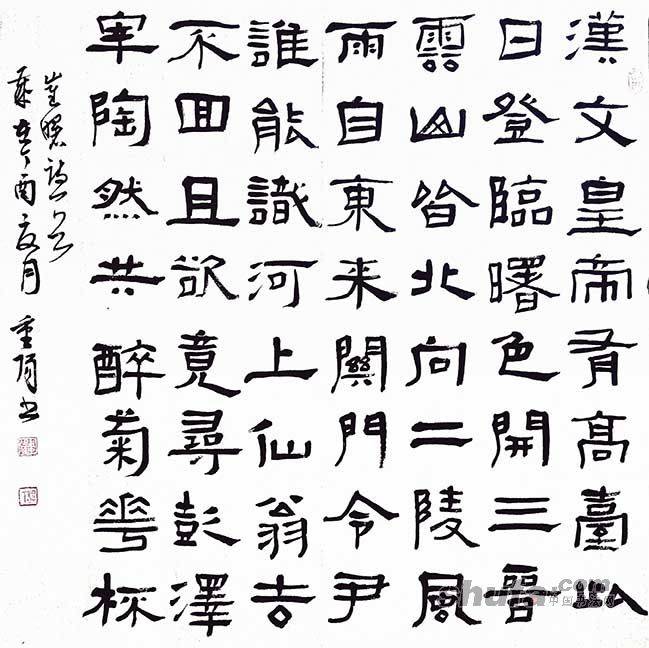 漢文皇帝有高臺此
日登臨曙色開三晉
雲山皆北向二陵風
雨自東来關門令尹
誰能識河上仙翁去
不回且欲竟尋彭澤
宰陶然共醉菊花杯
崔曙詩
酉夏月
shufa.com
中国书法网